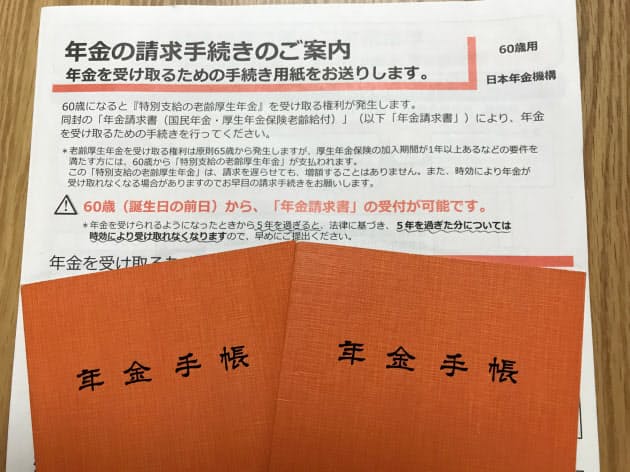 年金の請求手続きのご案内
60歳用
年金を受け取るための手続き用紙をお送りします。
日本年金機構
60歳になると『特別支給の老齢厚生年金』を受け取る権利が発生します。
同封の「年金請求書(国民年金・厚生年金保険老齢給付)」(以下「年金請求書」)により、年金
を受け取るための手続きを行ってください。
*老齢厚生年金を受け取る権利は原則65歳から発生しますが、厚生年金保険の加入期間が1年以上あるなどの要件を
満たす方には、60歳から「特別支給の老齢厚生年金」が支払われます。
この「特別支給の老齢厚生年金」は、請求を遅らせても、増額することはありません。また、時効により年金が
受け取れなくなる場合がありますのでお早目の請求手続きをお願いします。
60歳(誕生日の前日)から、「年金請求書」の受付が可能です。
*年金を受けられるようになったときから5年を過ぎると、法律に基づき、5年を過ぎた分については
時効により受け取れなくなりますので、早めにご提出ください。
年金を受け取るた
年金手帳
年金手帳